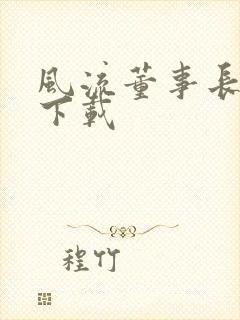 風流董事長
下載
程竹